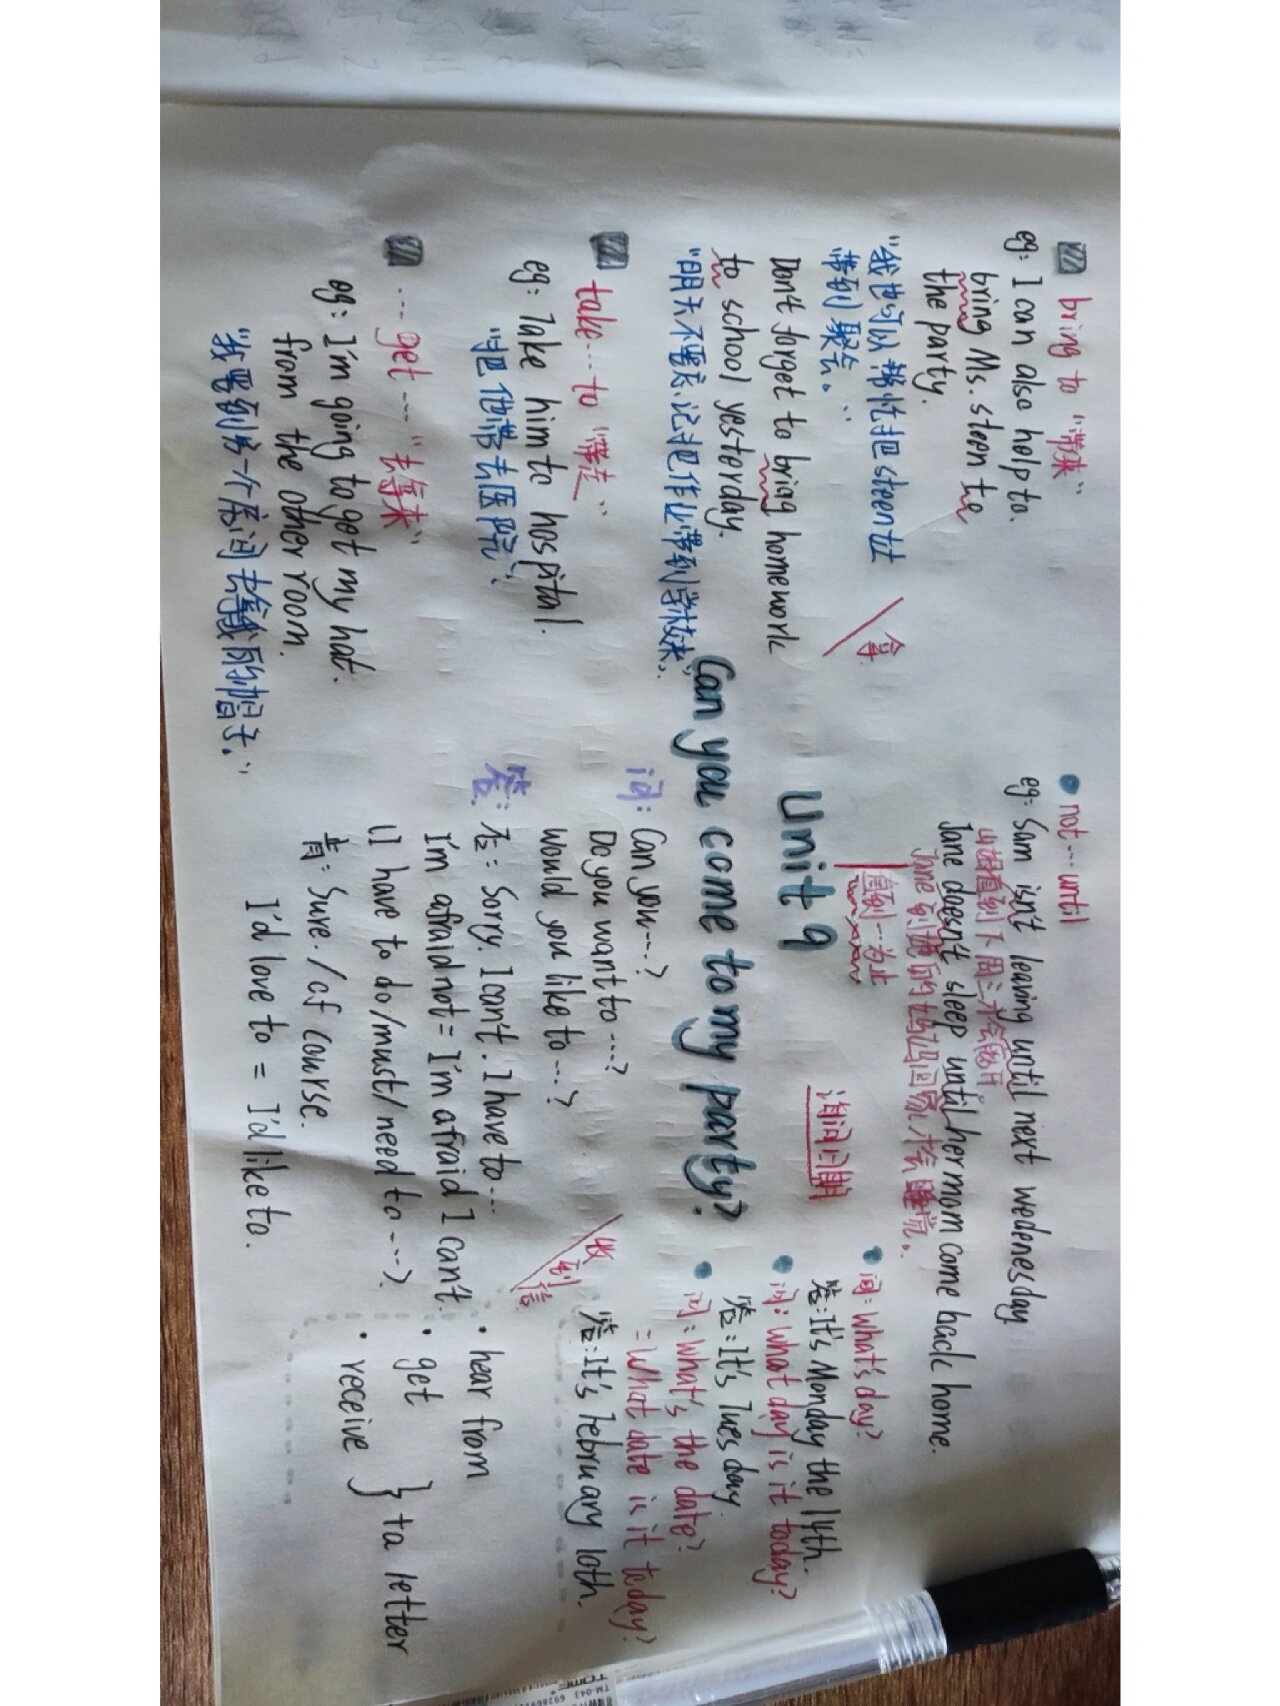 bring to "带来"
eg: I can also help to.
bring Ms. steen to
the party.
"我也可以帮忙把steen女士
带到聚会。"
Don't forget to bring homework
to school yesterday.
"明天不要忘记把作业带到学校来"
take...to "带走"
eg: Take him to hospital.
"把他带去医院"
...get..."去拿来"
eg: I'm going to get my hat.
from the other room.
"我要到另一个房间去拿我的帽子."
拿
not...until
eg: Sam isn't leaving until next wedenesday
山姆直到下周三才会离开
Jane doesn't sleep until her mom come back home.
Jane到她的妈妈回家才会睡觉.
直到...为止
Unit 9
Can you come to my party?
问: Can you...?
Do you want to ...?
Would you like to ...?
答: 否: Sorry, I can't. I have to...
I'm afraid not = I'm afraid I can't.
(I have to do/must/need to...).
肯: Sure. /of course.
I'd love to = I'd like to.
询问日期
问: What's day?
答: It's Monday the 14th.
问: What day is it today?
答: It's Tuesday.
问: What's the date?
= What date is it today?
答: It's February 10th.
收到信
hear from
get
receive } ta letter